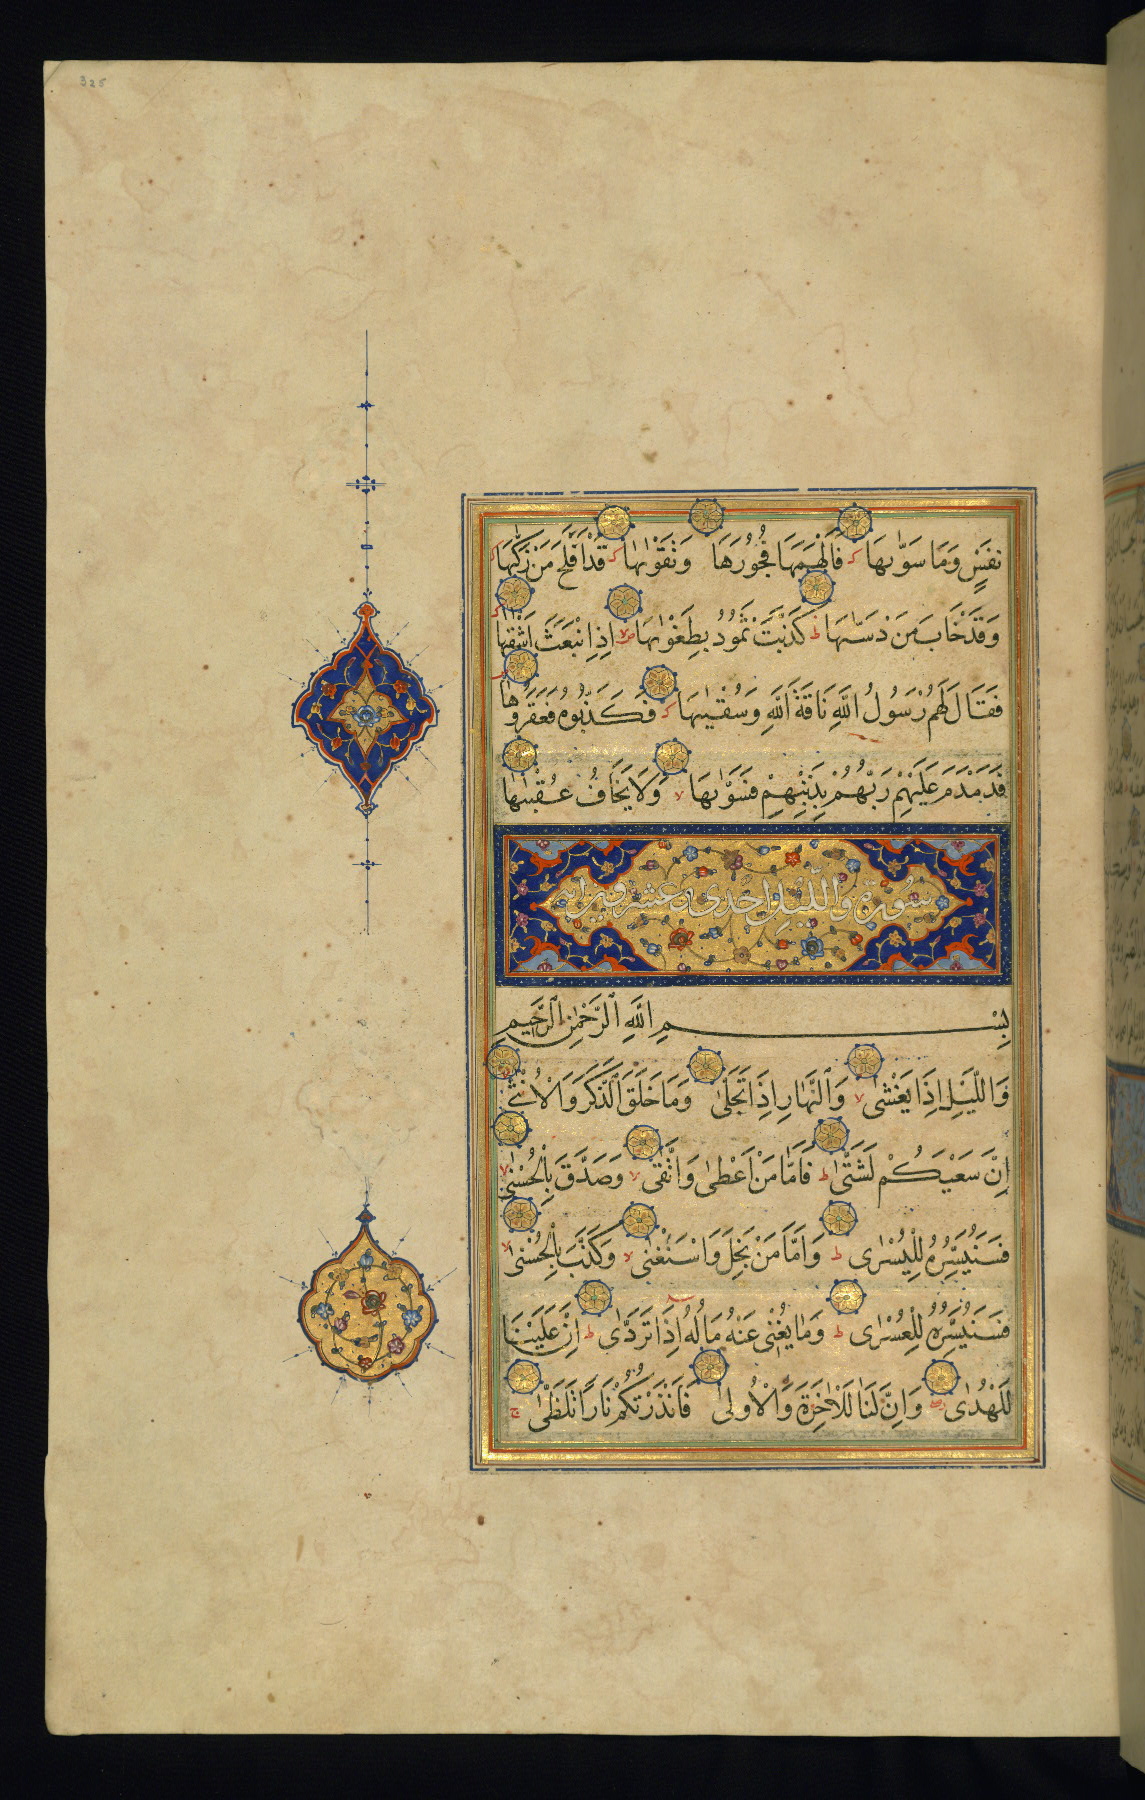 325
نَفْسٍ وَمَا سَوّٰیهَا فَاَلْهَمَهَا فُجُورَهَا وَتَقْوٰیٰهَا قَدْ اَفْلَحَ مَنْ زَكّٰیهَا
وَقَدْ خَابَ مَنْ دَسّٰیهَا ط كَذَّبَتْ ثَمُودُ بِطَغْوٰیهَا اِذِ انْبَعَثَ اَشْقٰیهَا
فَقَالَ لَهُمْ رَسُولُ اللّٰهِ نَاقَةَ اللّٰهِ وَسُقْیٰهَا فَكَذَّبُوهُ فَعَقَرُوهَا
فَدَمْدَمَ عَلَیْهِمْ رَبُّهُمْ بِذَنْبِهِمْ فَسَوّٰیهَا لا وَلَا یَخَافُ عُقْبٰیهَا
سورة واللیل احدی و عشرون آیه
بِسْمِ اللّٰهِ الرَّحْمٰنِ الرَّحِیمِ
وَاللَّیْلِ اِذَا یَغْشٰی لا وَالنَّهَارِ اِذَا تَجَلّٰی وَمَا خَلَقَ الذَّكَرَ وَالْاُنْثٰی
اِنَّ سَعْیَكُمْ لَشَتّٰی ط فَاَمَّا مَنْ اَعْطٰی وَاتَّقٰی لا وَصَدَّقَ بِالْحُسْنٰی لا
فَسَنُیَسِّرُهُ لِلْیُسْرٰی ط وَاَمَّا مَنْ بَخِلَ وَاسْتَغْنٰی لا وَكَذَّبَ بِالْحُسْنٰی لا
فَسَنُیَسِّرُهُ لِلْعُسْرٰی ط وَمَا یُغْنٖی عَنْهُ مَالُهُ اِذَا تَرَدّٰی ط اِنَّ عَلَیْنَا
لَلْهُدٰی وَاِنَّ لَنَا لَلْاٰخِرَةَ وَالْاُولٰی فَاَنْذَرْتُكُمْ نَارًا تَلَظّٰی ج